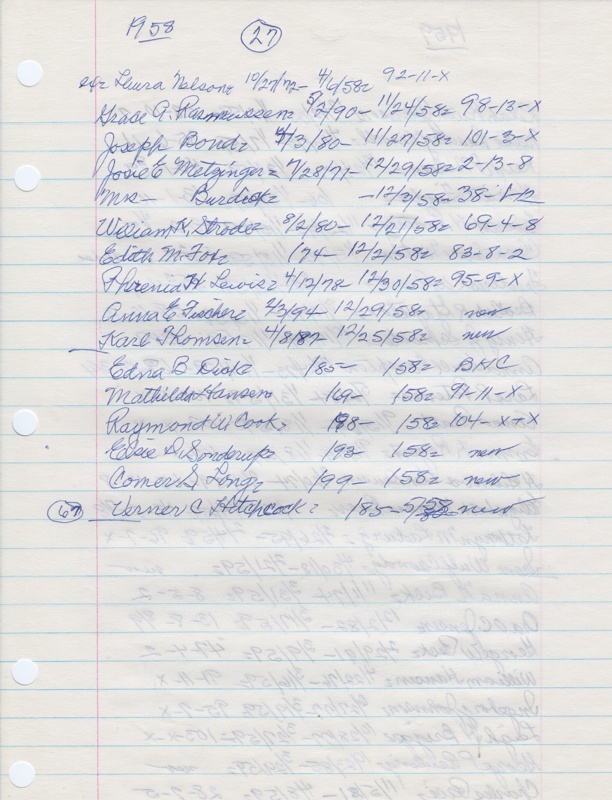 1958 27
Laura Nelson= 10/27/72- 4/6/58= 92-11-X
Grace A. Rasmussen= 5/2/90- 11/24/58= 98-13-X
Joseph Bond= 4/3/80- 11/27/58= 101-3-X
Josie E Metzinger= 7/28/71- 12/29/58= 2-13-8
Mrs- Burdick= -12/3/58= 38-
William K. Strode= 8/2/80- 12/21/58= 69-4-8
Edith M. Fox= 174- 12/2/58= 83-8-2
Phrenia H Lewis= 4/12/78- 12/30/58= 95-9-X
Anna E Fischer= 2/3/94- 12/29/58= new
Karl Thomsen= 4/8/87- 12/25/58= new
Edna B Dick= /85- /58= BHC
Mathilda Hansen= /69- /58= 91-11-X
Raymond W Cook= /98- /58= 104-X+X
Elsie D. Sonderup= /93- /58= new
Comer S. Long= /99- /58= new
67 Verner C. Hitchcock= /85- 5/58= new